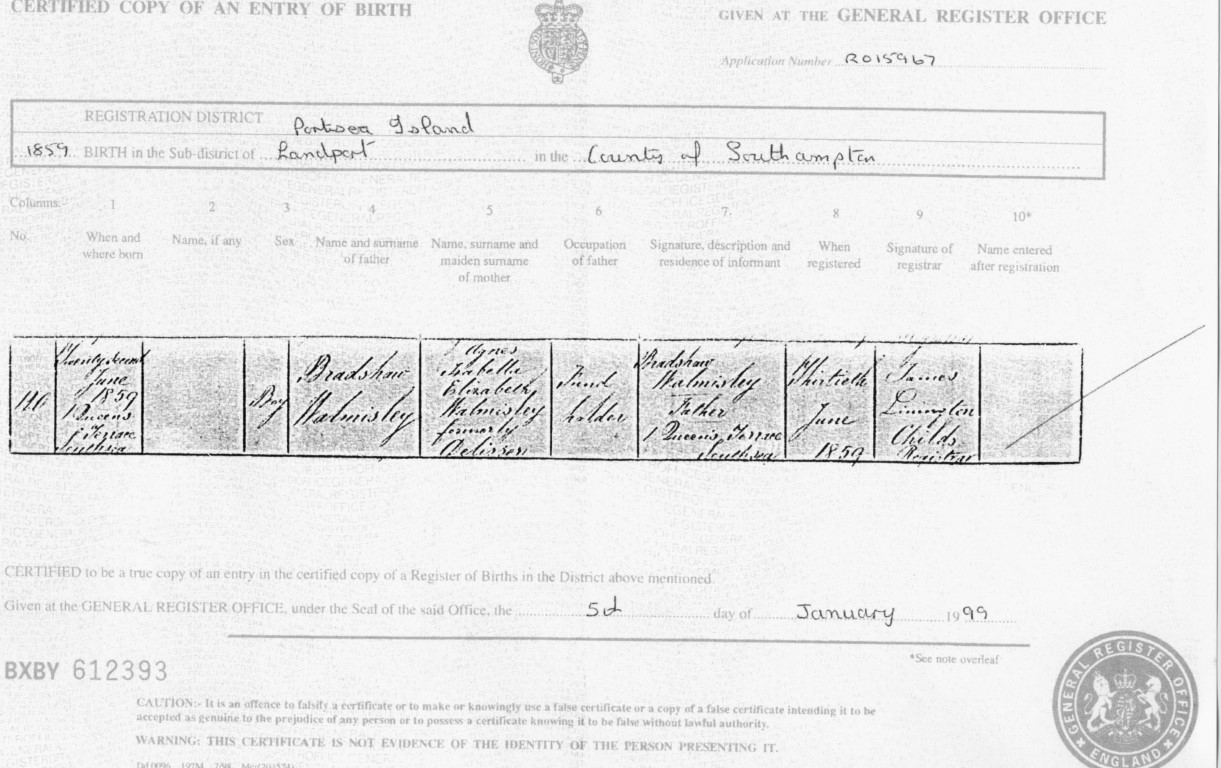 CERTIFIED COPY OF AN ENTRY OF BIRTH
GIVEN AT THE GENERAL REGISTER OFFICE
Application Number R015967
REGISTRATION DISTRICT Portsea Island
1859 BIRTH in the Sub-district of Landport in the County of Southampton
Columns:- 1 2 3 4 5 6 7. 8 9 10*
No. When and where born
Name, if any
Sex
Name and surname of father
Name, surname and maiden surname of mother
Occupation of father
Signature, description and residence of informant
When registered
Signature of registrar
Name entered after registration
Twenty second
June
1859
1 Queens
Terrace
Southsea
Boy
Bradshaw
Walmisley
Agnes
Isabella
Elizabeth
Walmisley
formerly
Delisser
Fund
holder
Bradshaw
Walmisley
Father
1 Queens Terrace
Southsea
Thirtieth
June
1859
James
Linington
Childs
Registrar
CERTIFIED to be a true copy of an entry in the certified copy of a Register of Births in the District above mentioned.
Given at the GENERAL REGISTER OFFICE, under the Seal of the said Office, the 5th day of January 1999
*See note overleaf
BXBY 612393
CAUTION:- It is an offence to falsify a certificate or to make or knowingly use a false certificate or a copy of a false certificate intending it to be
accepted as genuine to the prejudice of any person or to possess a certificate knowing it to be false without lawful authority.
WARNING: THIS CERTIFICATE IS NOT EVIDENCE OF THE IDENTITY OF THE PERSON PRESENTING IT.
GENERAL REGISTER OFFICE
ENGLAND